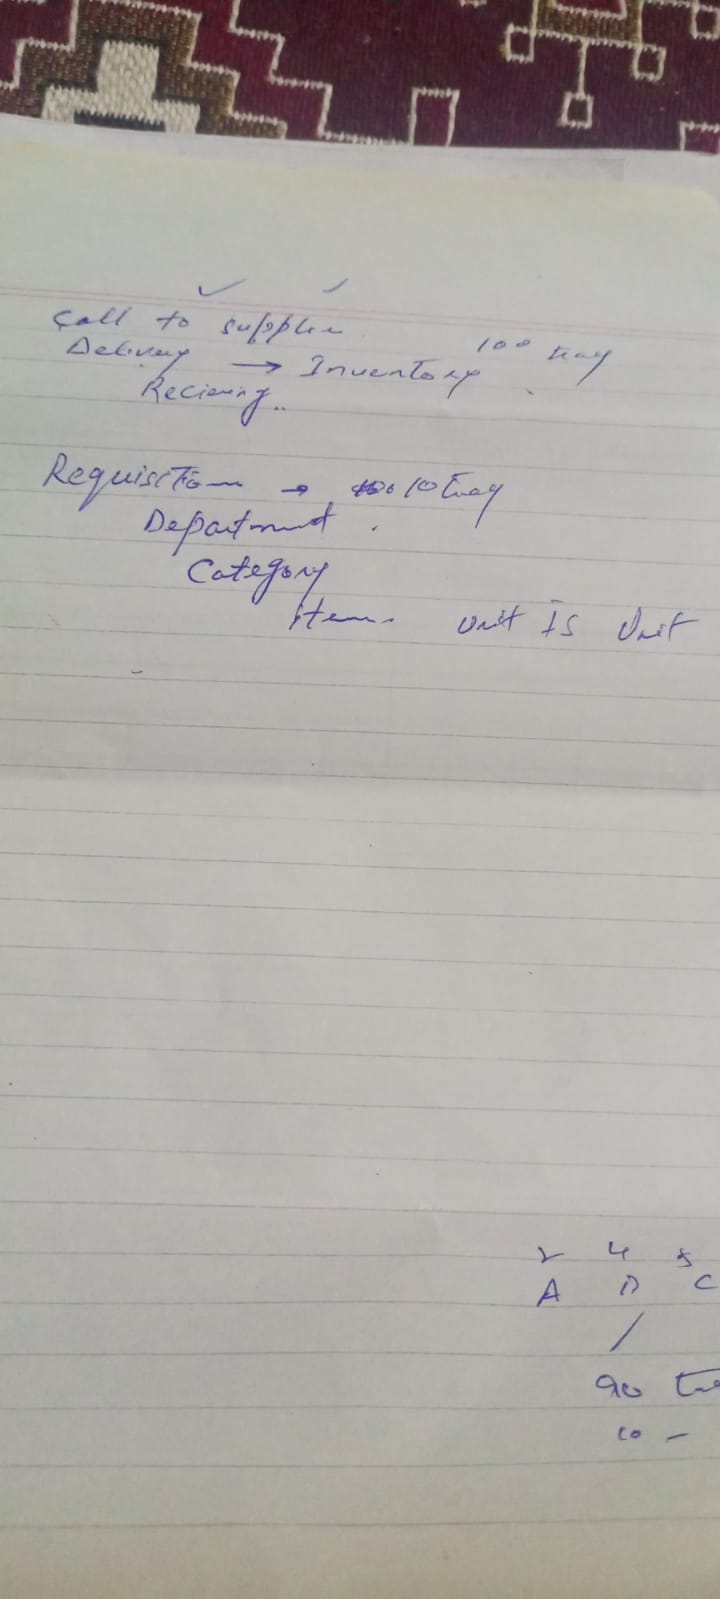 Call to supplier
Delivery → Inventory 100 tray
Recieving..
Requisition → 10 tray
Department.
Category
Item. Unit IS Unit
A B C
90
10 -